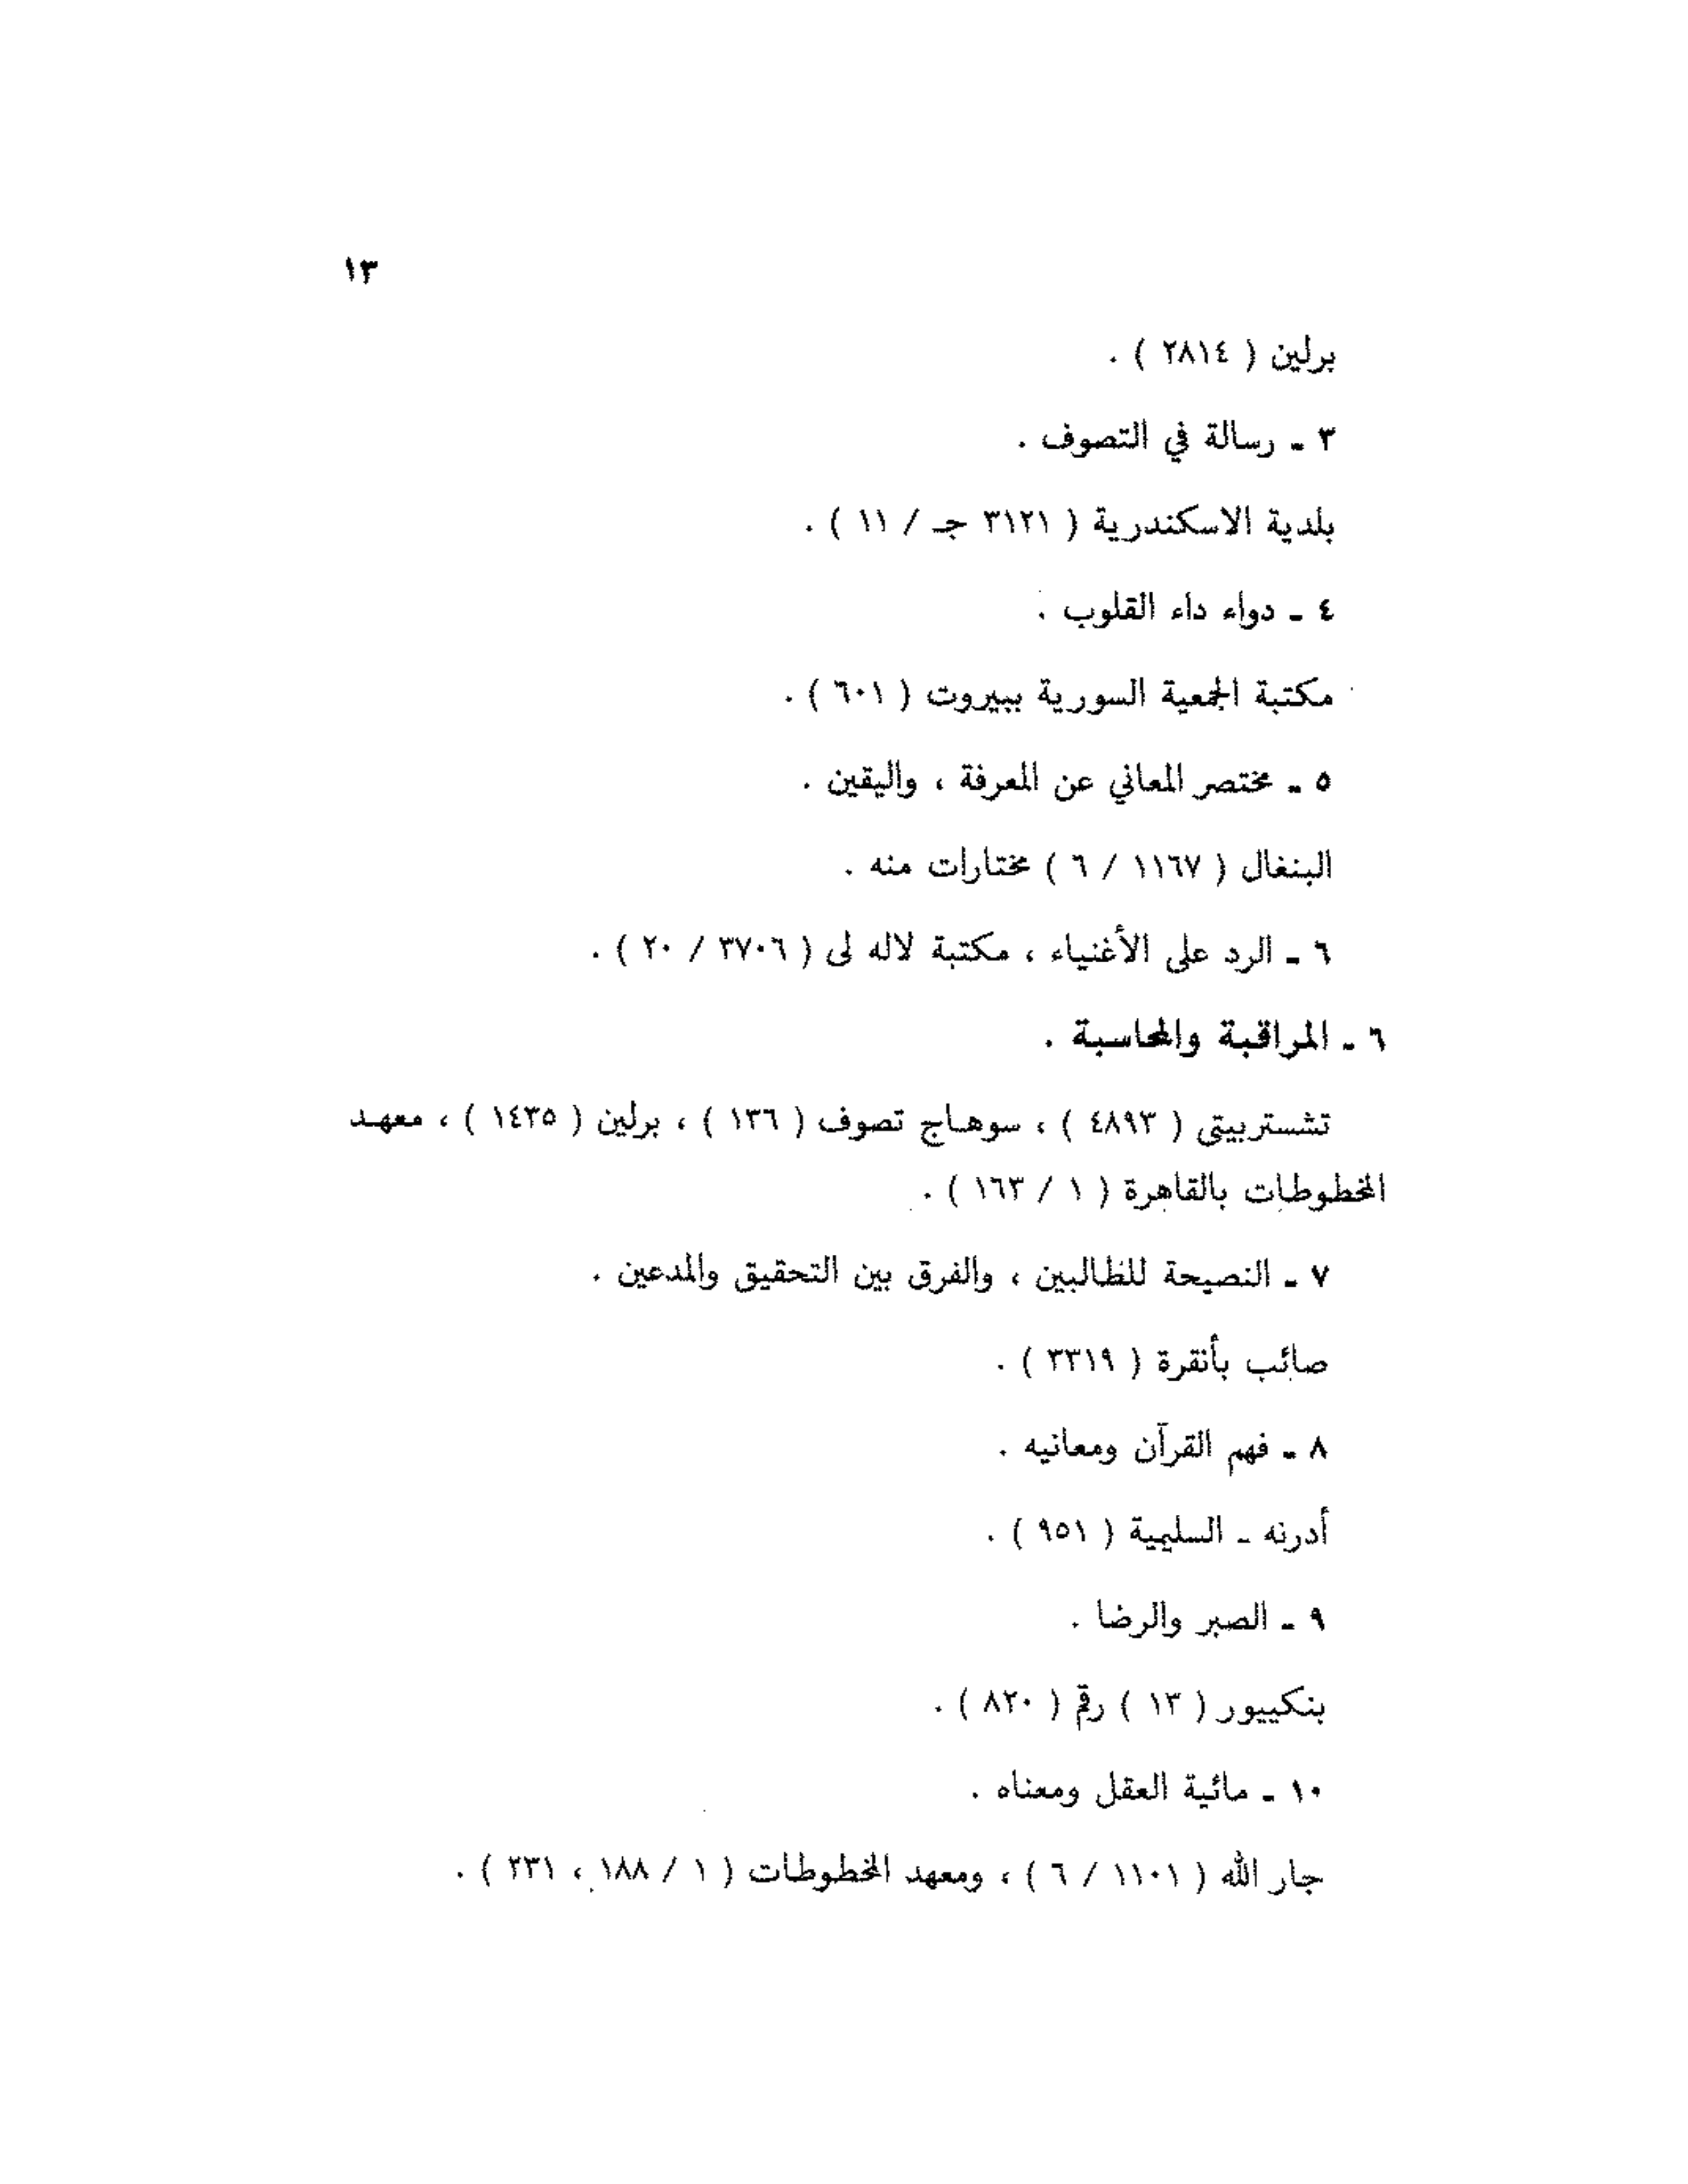 ١٣
برلين ( ٢٨١٤ ) .
٣ ـ رسالة في التصوف .
بلدية الاسكندرية ( ٣١٢١ جـ / ١١ ) .
٤ ـ دواء داء القلوب .
مكتبة الجمعية السورية ببيروت ( ٦٠١ ) .
٥ ـ مختصر المعاني عن المعرفة ، واليقين .
البنغال ( ١١٦٧ / ٦ ) مختارات منه .
٦ ـ الرد على الأغنياء ، مكتبة لاله لى ( ٣٧٠٦ / ٢٠ ) .
٦ ـ المراقبة والمحاسبة .
تشستربيتى ( ٤٨٩٣ ) ، سوهاج تصوف ( ١٣٦ ) ، برلين ( ١٤٣٥ ) ، معهد
المخطوطات بالقاهرة ( ١ / ١٦٣ ) .
٧ ـ النصيحة للطالبين ، والفرق بين التحقيق والمدعين .
صائب بأنقرة ( ٣٣١٩ ) .
٨ ـ فهم القرآن ومعانيه .
أدرنه ـ السليمية ( ٩٥١ ) .
٩ ـ الصبر والرضا .
بنكيبور ( ١٣ ) رقم ( ٨٢٠ ) .
١٠ ـ مائية العقل ومعناه .
جار الله ( ١١٠١ / ٦ ) ، ومعهد المخطوطات ( ١ / ١٨٨ ، ٢٣١ ) .